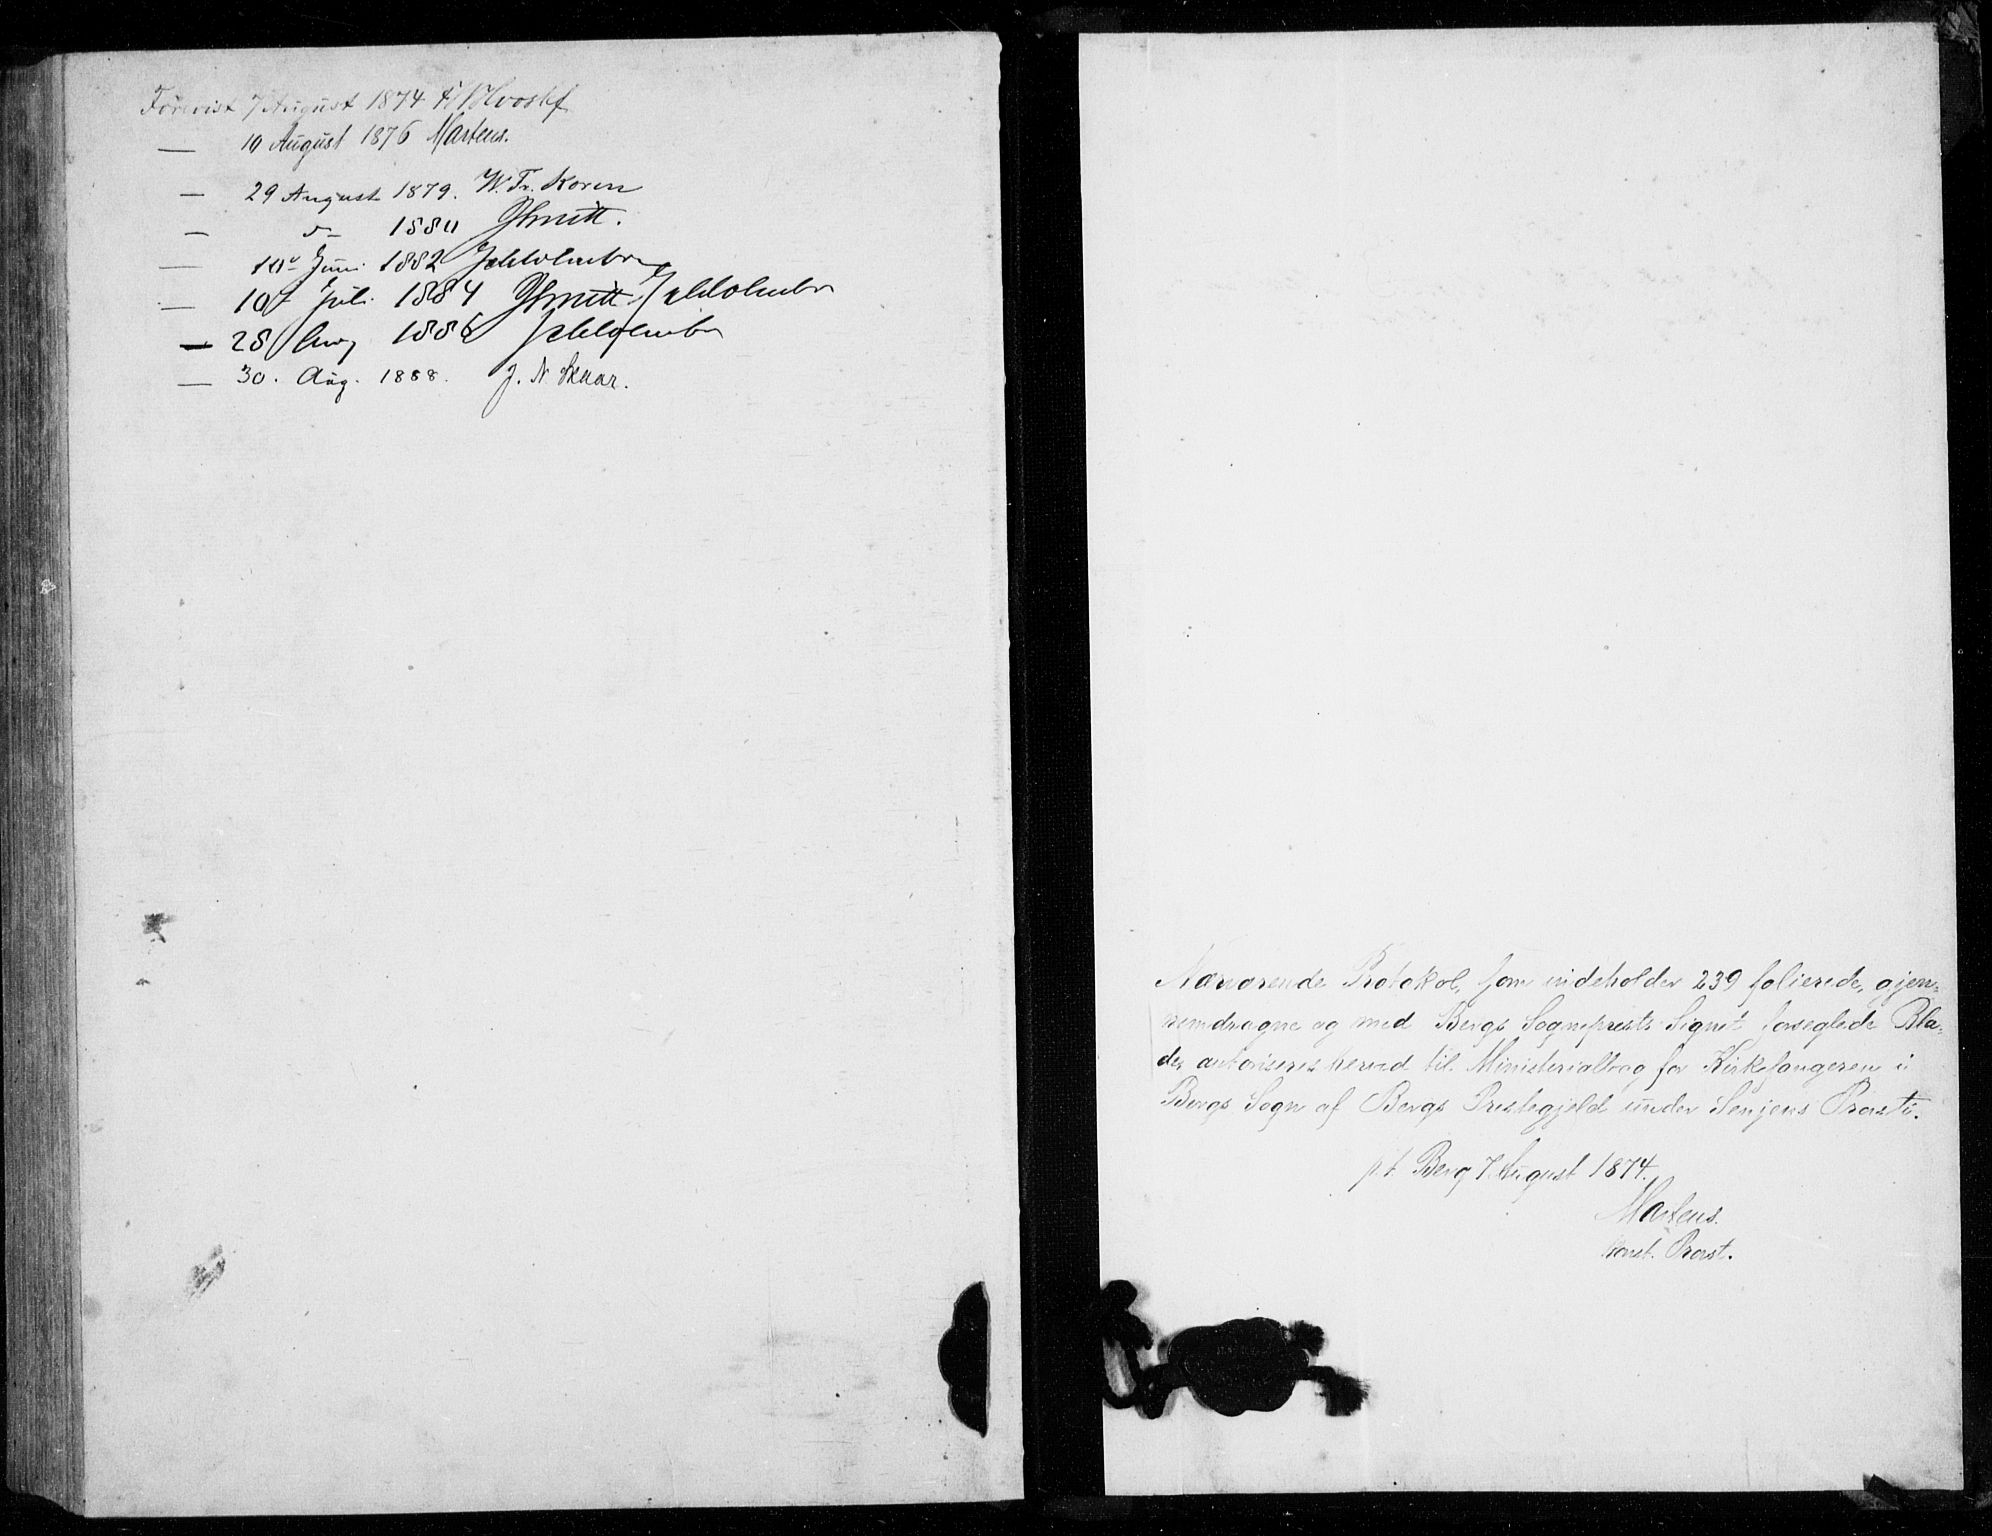 Forevist 7 August 1874 Hvoslef
— 10 August 1876 Martens.
— 29 August 1879. W. Fr. Koren
— 1880 Smitt.
— 10 Juni 1882
— 10 Juli 1884 Smitt
— 28 Aug 1886
— 30. Aug. 1888. J. N. Skaar.
Nærværende Protokol, som indeholder 239 folierede, gjen-
nemdragne og med Bergs Sogneprests Signet forseglede Bla-
de, autoriseres herved til Ministerialbog for Kirkesangeren i
Bergs Sogn af Bergs Prestegjeld under Senjens Provsti.
p. t. Berg 7 August 1874.
Martens.
konst. Provst.